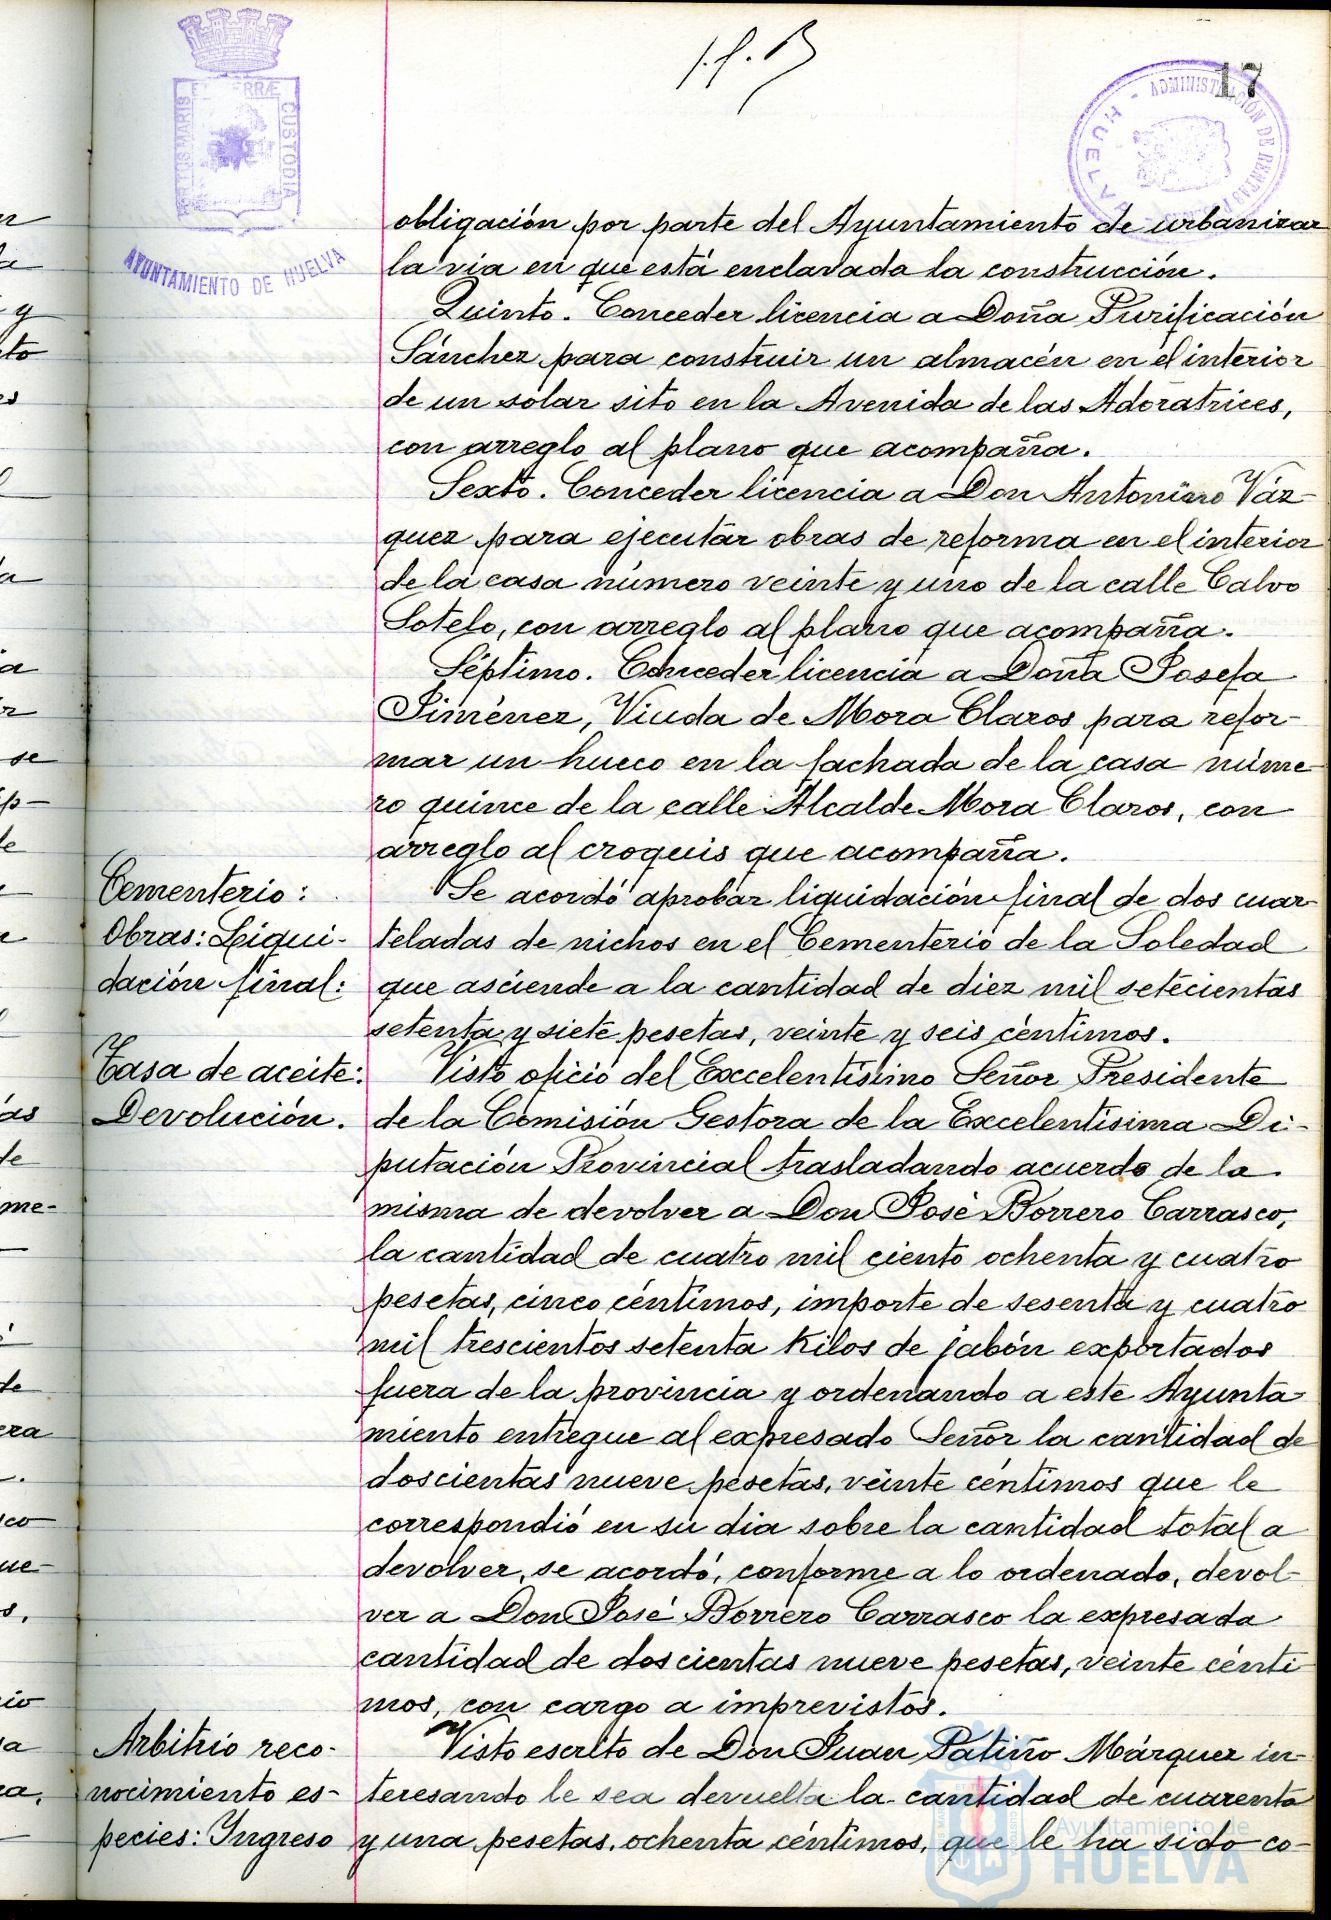 17
PORTUS MARIS ET TERRÆ CUSTODIA
AYUNTAMIENTO DE HUELVA
ADMINISTRACIÓN DE RENTAS
HUELVA
obligación por parte del Ayuntamiento de urbanizar
la via en que está enclavada la construcción.
Quinto. Conceder licencia a Doña Purificación
Sánchez para construir un almacén en el interior
de un solar sito en la Avenida de las Adoratrices,
con arreglo al plano que acompaña.
Sexto. Conceder licencia a Don Antonino Váz-
quez para ejecutar obras de reforma en el interior
de la casa número veinte y uno de la calle Calvo
Sotelo, con arreglo al plano que acompaña.
Séptimo. Conceder licencia a Doña Josefa
Jiménez, Viuda de Mora Claros para refor-
mar un hueco en la fachada de la casa núme-
ro quince de la calle Alcalde Mora Claros, con
arreglo al croquis que acompaña.
Cementerio:
Obras: Liqui-
dación final:
Se acordó aprobar liquidación final de dos cuar-
teladas de nichos en el Cementerio de la Soledad
que asciende a la cantidad de diez mil setecientas
setenta y siete pesetas, veinte y seis céntimos.
Tasa de aceite:
Devolución.
Visto oficio del Excelentísimo Señor Presidente
de la Comisión Gestora de la Excelentísima Di-
putación Provincial trasladando acuerdo de la
misma de devolver a Don José Borrero Carrasco,
la cantidad de cuatro mil ciento ochenta y cuatro
pesetas, cinco céntimos, importe de sesenta y cuatro
mil trescientos setenta kilos de jabón exportados
fuera de la provincia y ordenando a este Ayunta-
miento entregue al expresado Señor la cantidad de
doscientas nueve pesetas, veinte céntimos que le
correspondió en su dia sobre la cantidad total a
devolver, se acordó, conforme a lo ordenado, devol-
ver a Don José Borrero Carrasco la expresada
cantidad de doscientas nueve pesetas, veinte cénti-
mos, con cargo a imprevistos.
Arbitrio reco-
nocimiento es-
pecies: Ingreso
Visto escrito de Don Juan Patiño Márquez in-
teresando le sea devuelta la cantidad de cuarenta
y una pesetas, ochenta céntimos, que le ha sido co-
Ayuntamiento de
HUELVA